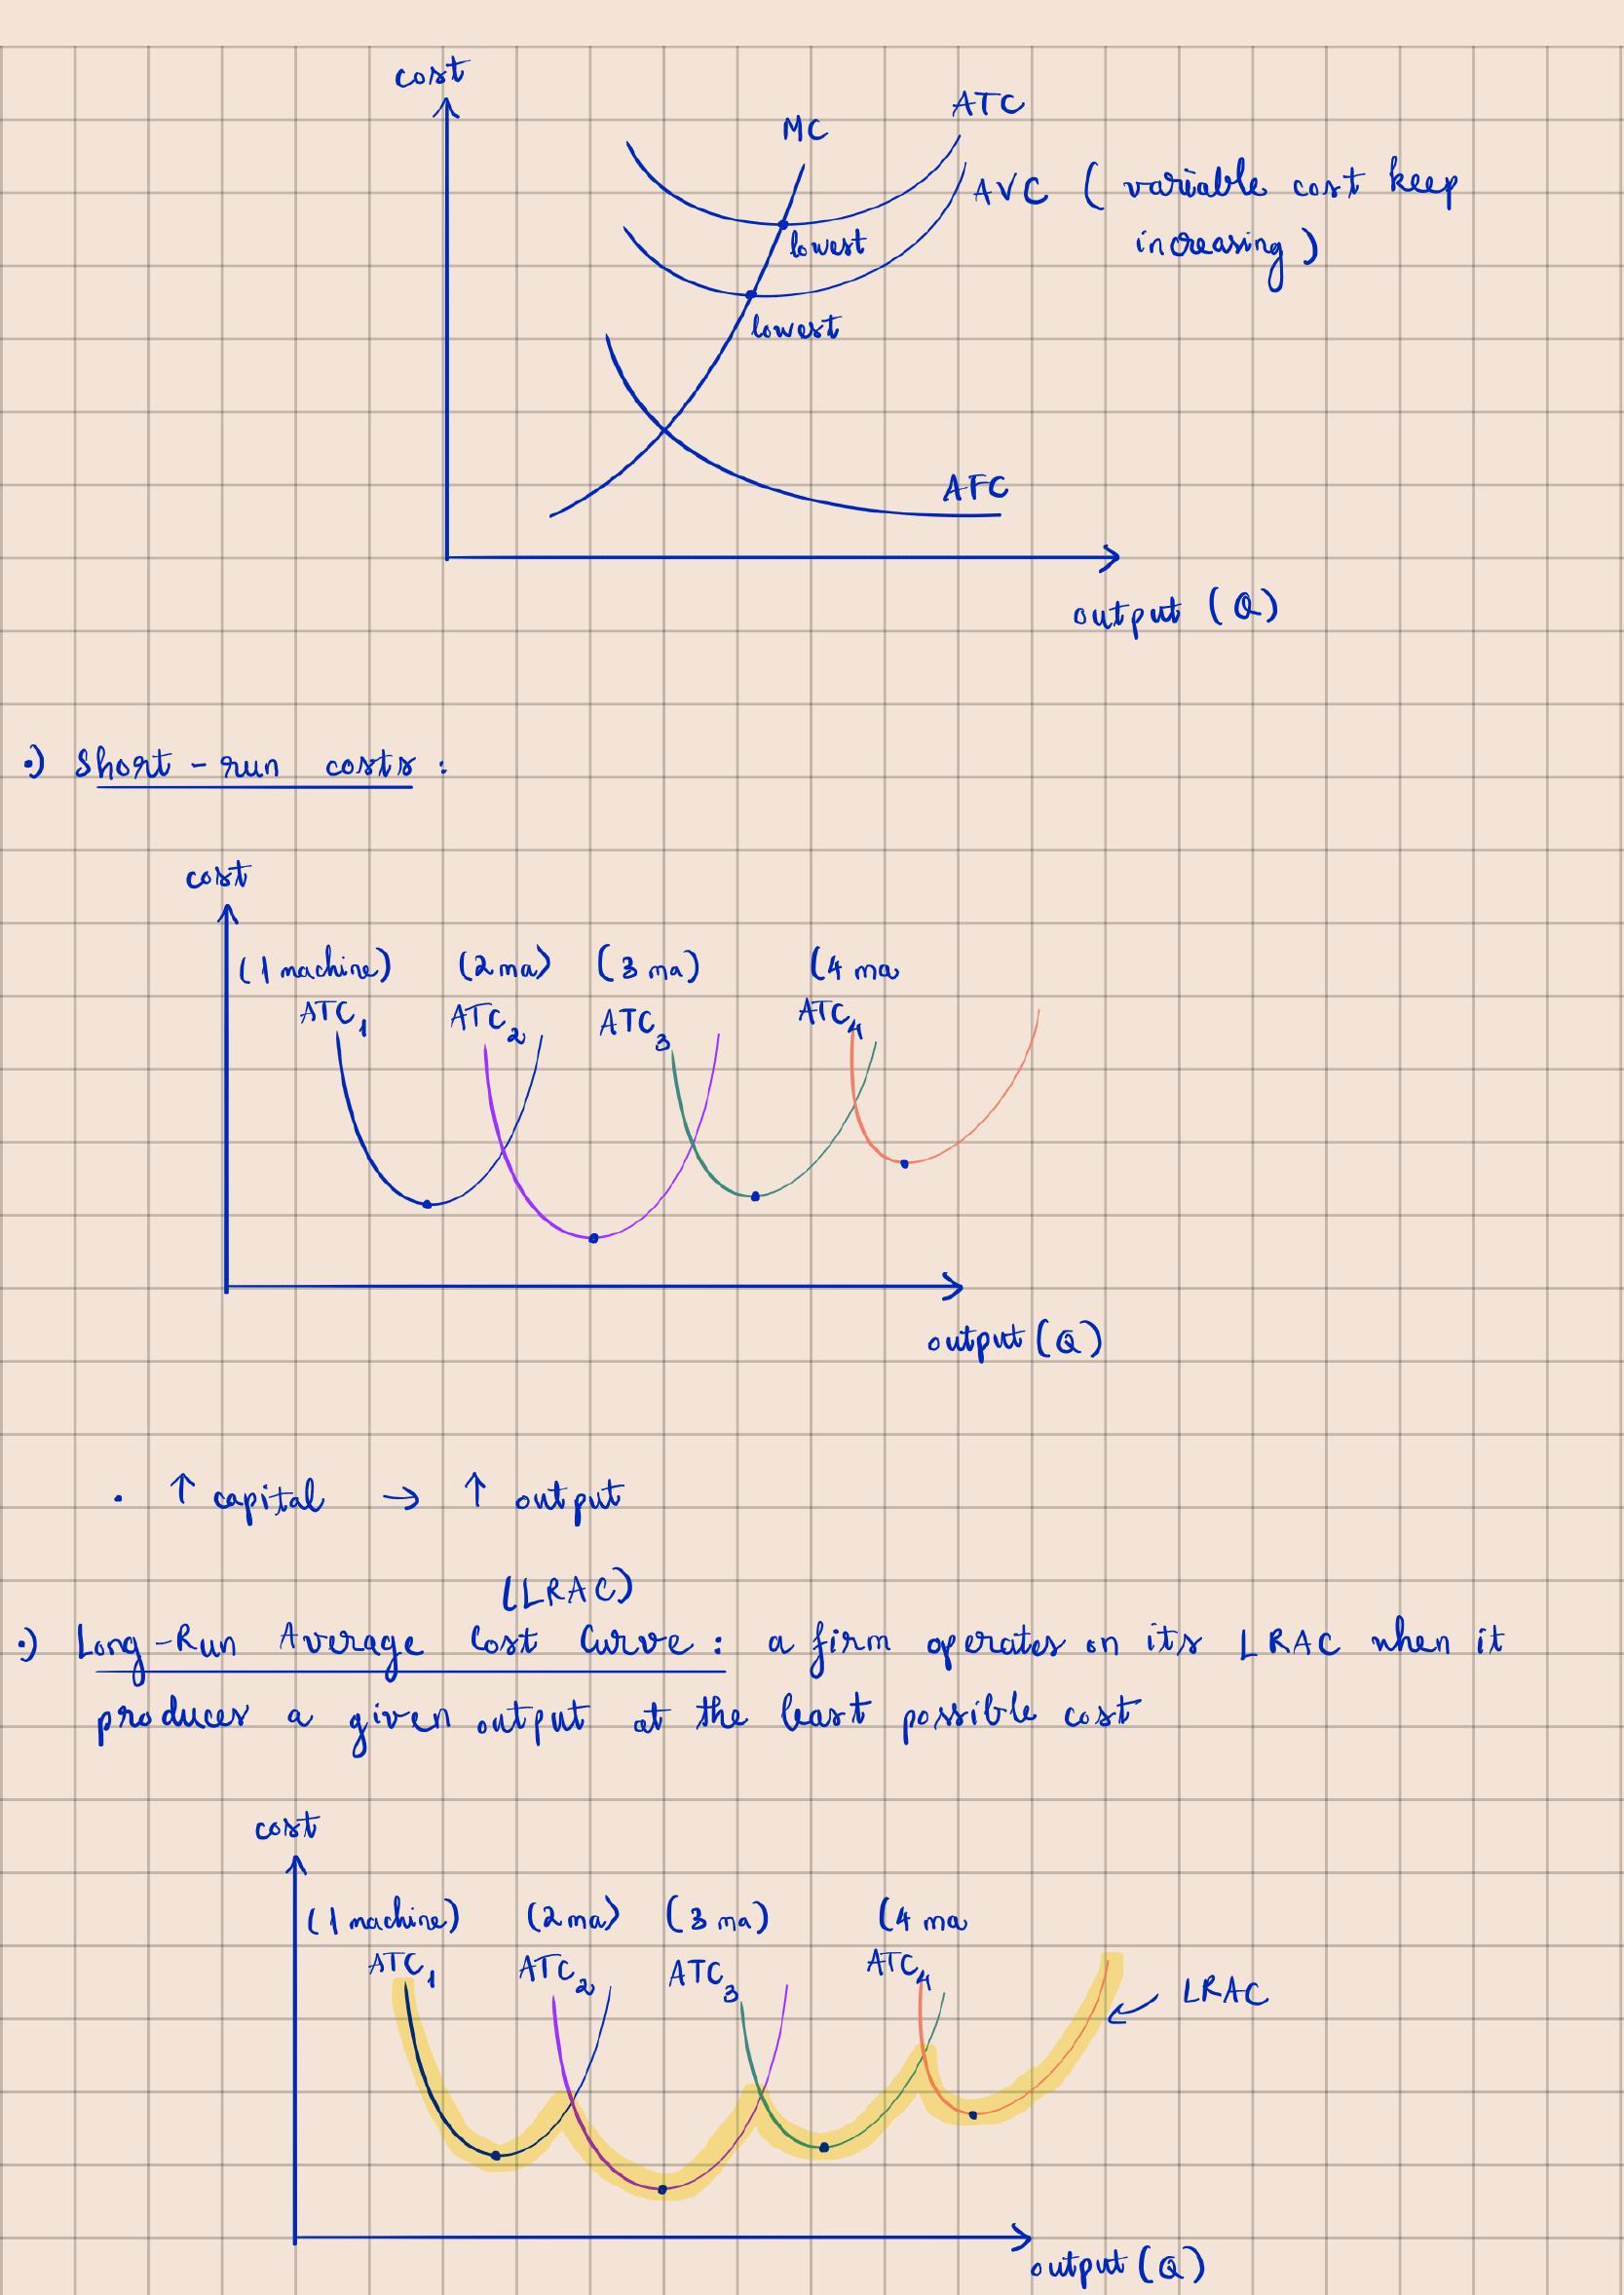 cost
MC
ATC
AVC ( variable cost keep
increasing )
lowest
lowest
AFC
output (Q)
•) Short-run costs :
cost
(1 machine) (2 ma) (3 ma) (4 ma
ATC1 ATC2 ATC3 ATC4
output (Q)
• ↑ capital → ↑ output
(LRAC)
•) Long-Run Average Cost Curve : a firm operates on its LRAC when it
produces a given output at the least possible cost
cost
(1 machine) (2 ma) (3 ma) (4 ma
ATC1 ATC2 ATC3 ATC4
LRAC
output (Q)